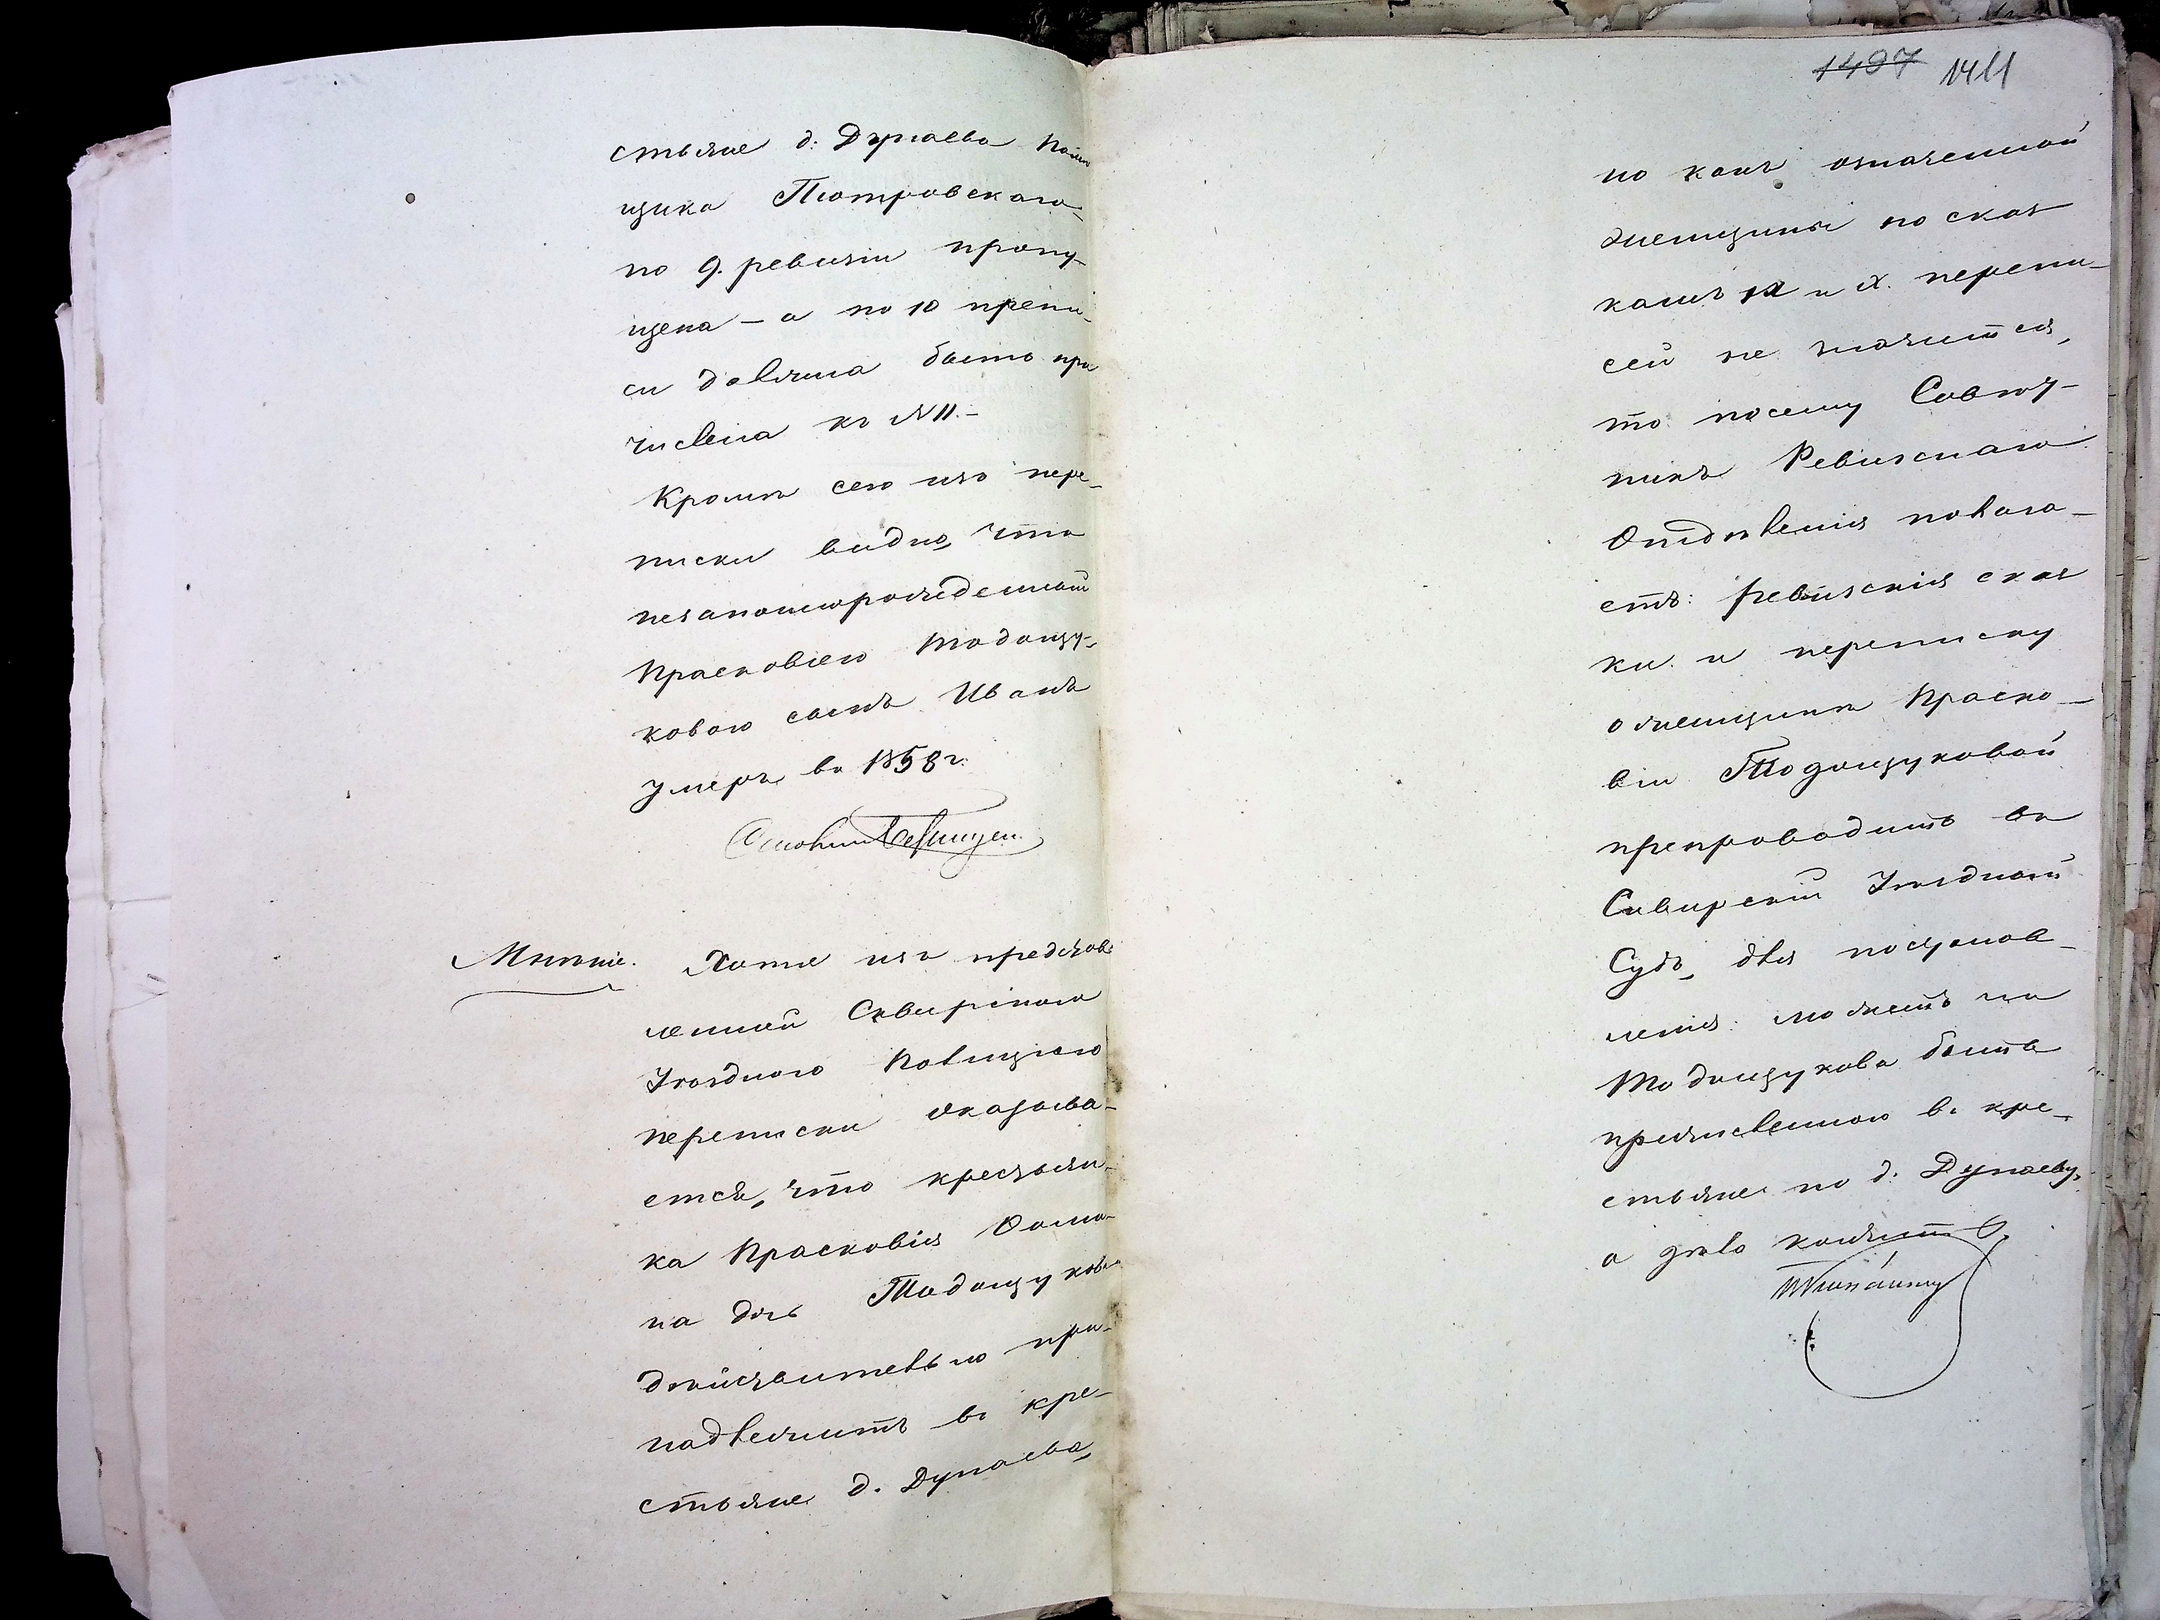 стьяне д: Дунаева Поме
щика Піотровскаго
по 9. ревизіи пропу-
щена – а по 10 препи-
си должна быть при
числена къ №11.–
Кромѣ сего изъ пере-
писки видно, что
незаконнорожденный
Прасковіею Тодощу-
ковою сынъ Иванъ
умеръ въ 1858 г.
Мнѣніе. Хотя изъ представ
ленной Сквирскою
Уѣздною Полиціею
переписки оказыва-
ется, что крестьян-
ка Прасковія Фоми-
на дочь Тодощукова
дѣйствительно при-
надлежитъ въ кре-
стьяне д. Дунаева,
1497 1411
но какъ означенной
женщины по сказ
камъ IX и X. перепи-
сей не значится,
то посему Совѣт-
никъ Ревизскаго
Отдѣленія полага-
етъ: ревизскія сказ
ки и переписку
о женщинѣ Праско-
віи Тодощуковой
препроводить въ
Сквирскій Уѣздный
Судъ, для постанов-
ленія: можетъ ли
Тодощукова быть
причисленною въ кре-
стьяне по д. Дунаеву,
а дѣло кончить